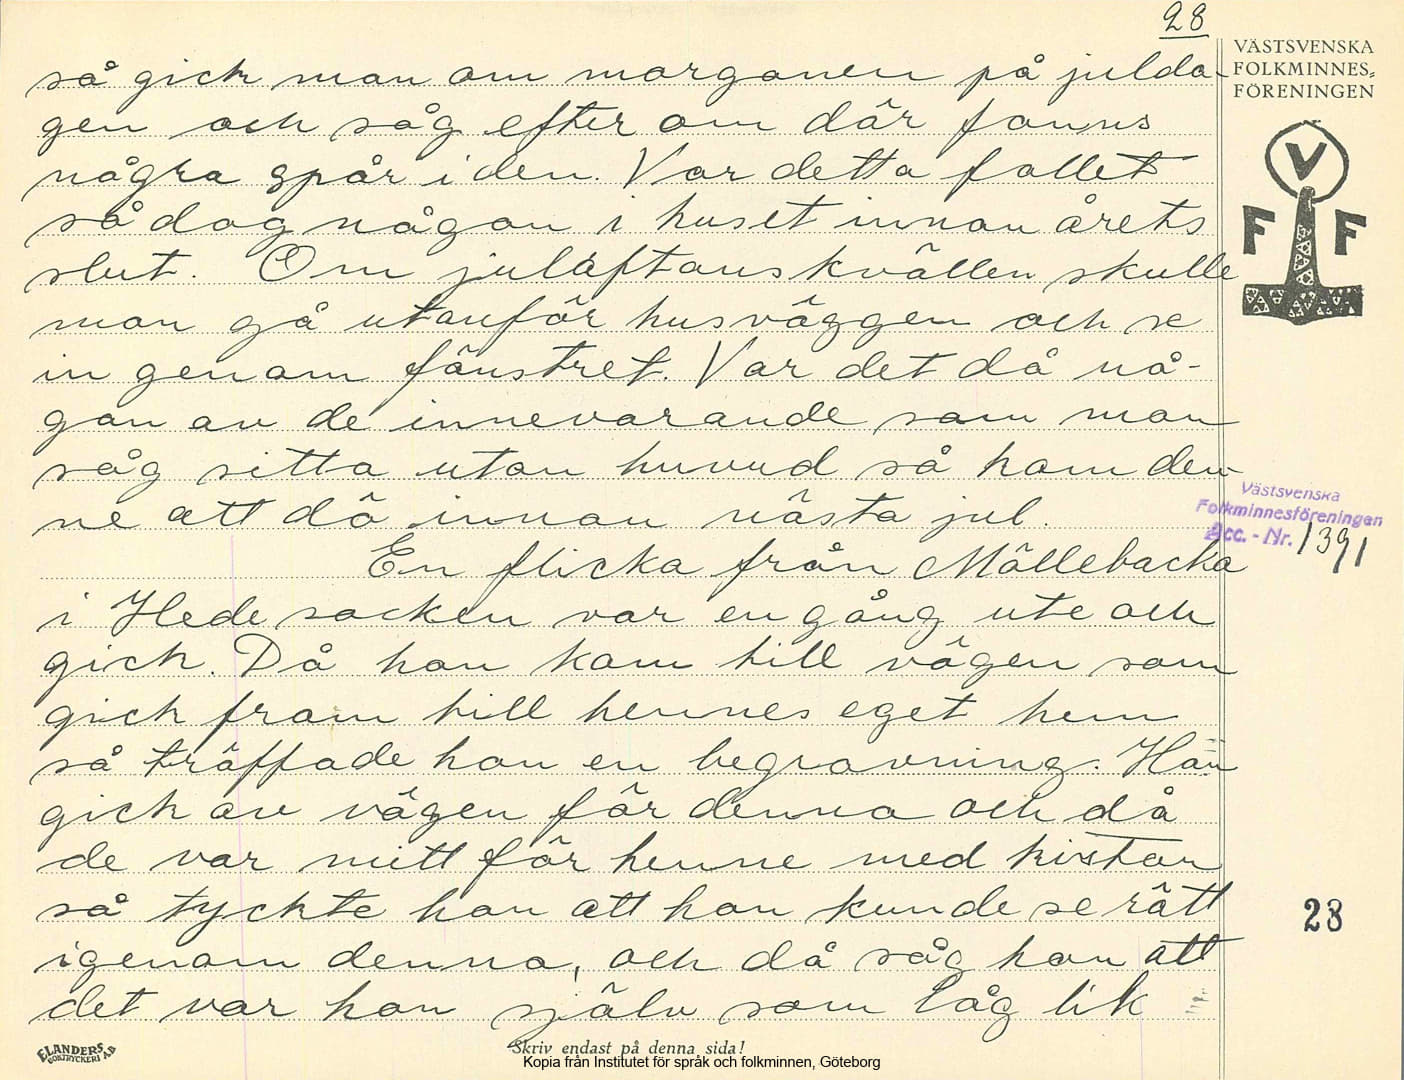 28
VÄSTSVENSKA
FOLKMINNES-
FÖRENINGEN
V
F F
så gick man om morgonen på julda-
gen och såg efter om där fanns
några spår i den. Var detta fallet
så dog någon i huset innan årets
slut. Om julaftonskvällen skulle
man gå utanför husväggen och se
in genom fönstret. Var det då nå-
gon av de innevarande som man
såg sitta utan huvud så kom den-
ne att dö innan nästa jul.
Västsvenska
Folkminnesföreningen
Acc. - Nr. 1391
En flicka från Möllebacka
i Hede socken var en gång ute och
gick. Då hon kom till vägen som
gick fram till hennes eget hem
så träffade hon en begravning. Hon
gick av vägen för denna och då
de var mitt för henne med kistan
så tyckte hon att hon kunde se rätt
igenom denna, och då såg hon att
det var hon själv som låg lik
28
ELANDERS
BOKTRYCKERI A.B
Skriv endast på denna sida!
Kopia från Institutet för språk och folkminnen, Göteborg